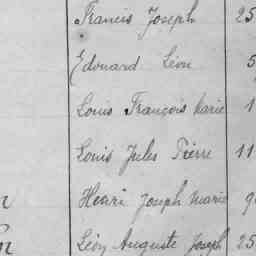 Francis Joseph 25
Edouard Léon 5
Louis François Marie 1
Louis Jules Pierre 11
Henri Joseph Marie 9
Léon Auguste Joseph 25